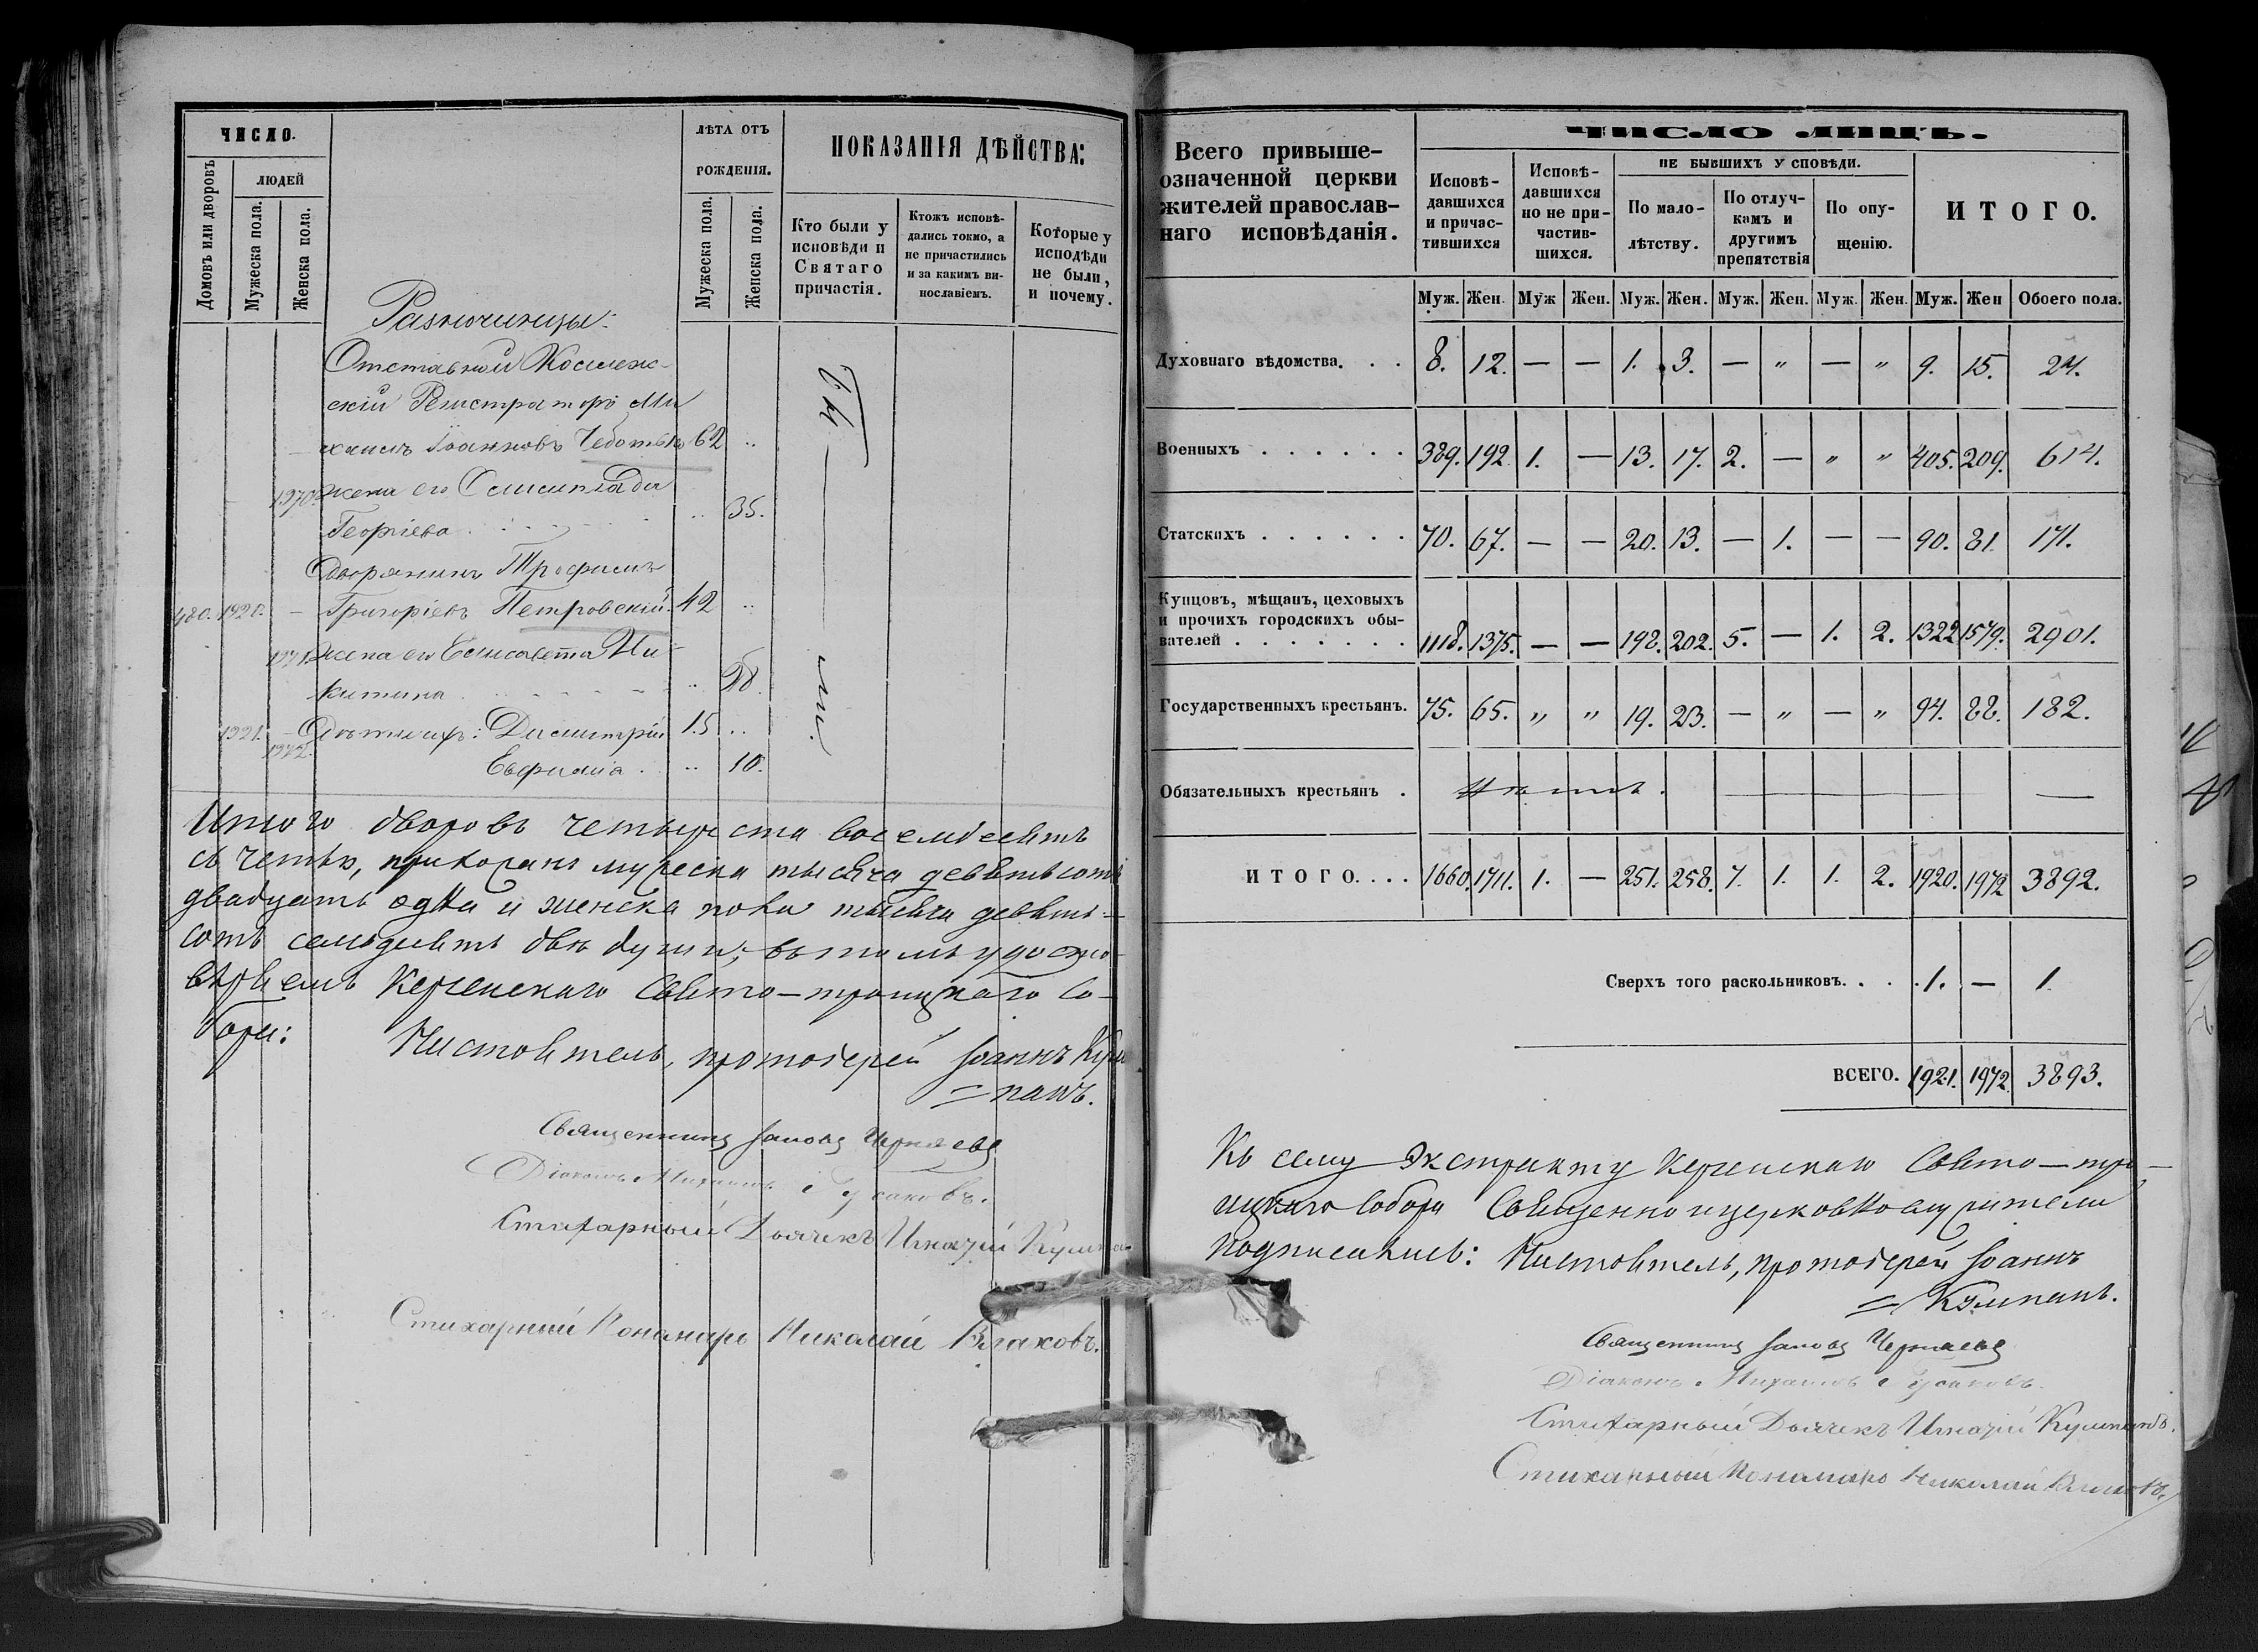 ЧИСЛО.
Домовъ или дворовъ
ЛЮДЕЙ
Мужеска пола.
Женска пола.
ЛѢТА ОТЪ
РОЖДЕНІЯ.
Мужеска пола.
Женска пола.
ПОКАЗАНІЯ ДѢЙСТВА:
Кто были у
исповѣди и
Святаго
причастія.
Ктожъ исповѣ-
дались токмо, а
не причастились
и за какимъ ви-
нославіемъ.
Которые у
исподѣди
не были,
и почему.
Разночинцы:
Отставной Коллеж-
скій Регистраторъ Ми
хаилъ Іоанновъ 62 ..
1970. жена его
Георгіева .. 35.
Дворянинъ Трофимъ
480. 1920. – Григоріевъ Петровскій 42 ..
1971. Жена его Елисавета Ни-
китина .. 28.
1921. – Дѣти ихъ: Димитрій 15 ..
1972. Евфимія .. 10.
Итого дворовъ четыреста восемдесятъ
съ четью, прихожанъ мужеска тысяча девятьсотъ
двадцать одна и женска пола тысяча девять-
сотъ семьдесятъ двѣ души; въ томъ удосто-
вѣряемъ Керченскаго Свято-троицкаго Со-
бора: Настоятель, протоіерей Іоаннъ Кум
= панъ.
Священникъ Іаковъ Черняевъ
Діаконъ Михаилъ Гусаковъ.
Стихарный Дьячекъ Игнатій
Стихарный Понамарь Николай Влаховъ.
Всего привыше-
означенной церкви
жителей православ-
наго исповѣданія.
ЧИСЛО ЛИЦЪ.
Исповѣ-
давшихся
и причас-
тившихся
Исповѣ-
давшихся
но не при-
частив-
шихся.
НЕ БЫВШИХЪ У СПОВѢДИ.
По мало-
лѣтству.
По отлуч-
камъ и
другимъ
препятствія
По опу-
щенію.
ИТОГО.
Муж. Жен. Муж Жен. Муж. Жен. Муж. Жен. Муж. Жен. Муж. Жен Обоего пола.
Духовнаго вѣдомства. . . 8. 12. — — 1. 3. — „ — „ 9. 15. 24.
Военныхъ . . . . . . 389. 192. 1. — 13. 17. 2. — „ „ 405. 209. 614.
Статскихъ . . . . . . 70. 67. — — 20. 13. — 1. — — 90. 81. 171.
Купцовъ, мѣщанъ, цеховыхъ
и прочихъ городскихъ обы-
вателей . . . . . . . 1118. 1375. — — 198. 202. 5. — 1. 2. 1322 1579. 2901.
Государственныхъ крестьянъ. 75. 65. „ „ 19. 23. — „ — „ 94. 88. 182.
Обязательныхъ крестьянъ . Нѣтъ. —
ИТОГО. . . . 1660. 1711. 1. — 251. 258. 7. 1. 1. 2. 1920. 1972 3892.
Сверхъ того раскольниковъ. . . 1. — 1.
ВСЕГО. 1921. 1972 3893.
Къ сему Экстракту Керченскаго Свято-тро-
ицкаго Собора Священно и церковнослужители
подписались: Настоятель, протоіерей Іоаннъ
= Кумпанъ.
Священникъ Іаковъ Черняевъ
Діаконъ Михаилъ Гусаковъ.
Стихарный Дьячекъ Игнатій Кумпанъ.
Стихарный Понамарь Николай Влаховъ.